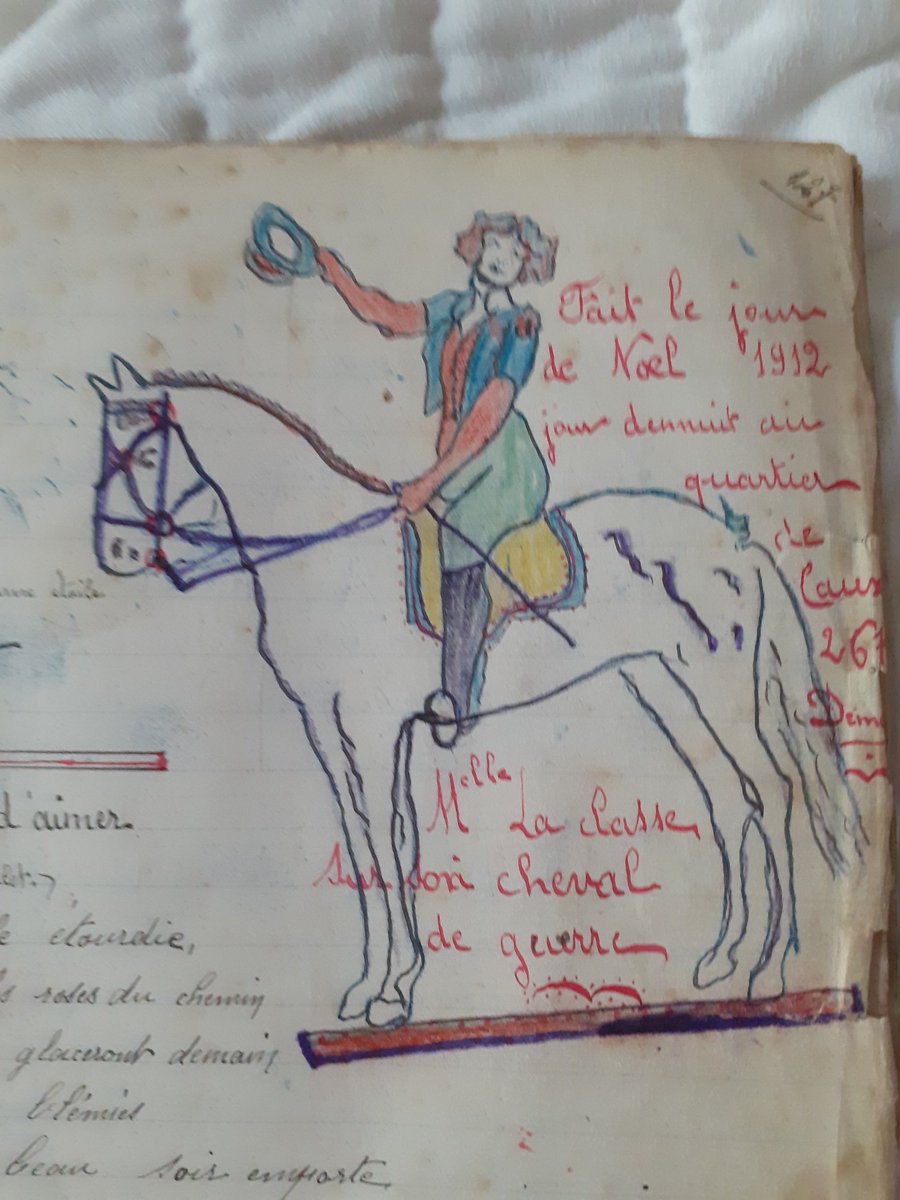 Fait le jour
de Noel 1912
jour dennuit au
quartier
de
Laux
261
Dem
étoile
d'aimer
étourdie,
roses du chemin
glaceront demain
blémies
beau soir emporte
Melle La Classe
sur son cheval
de guerre